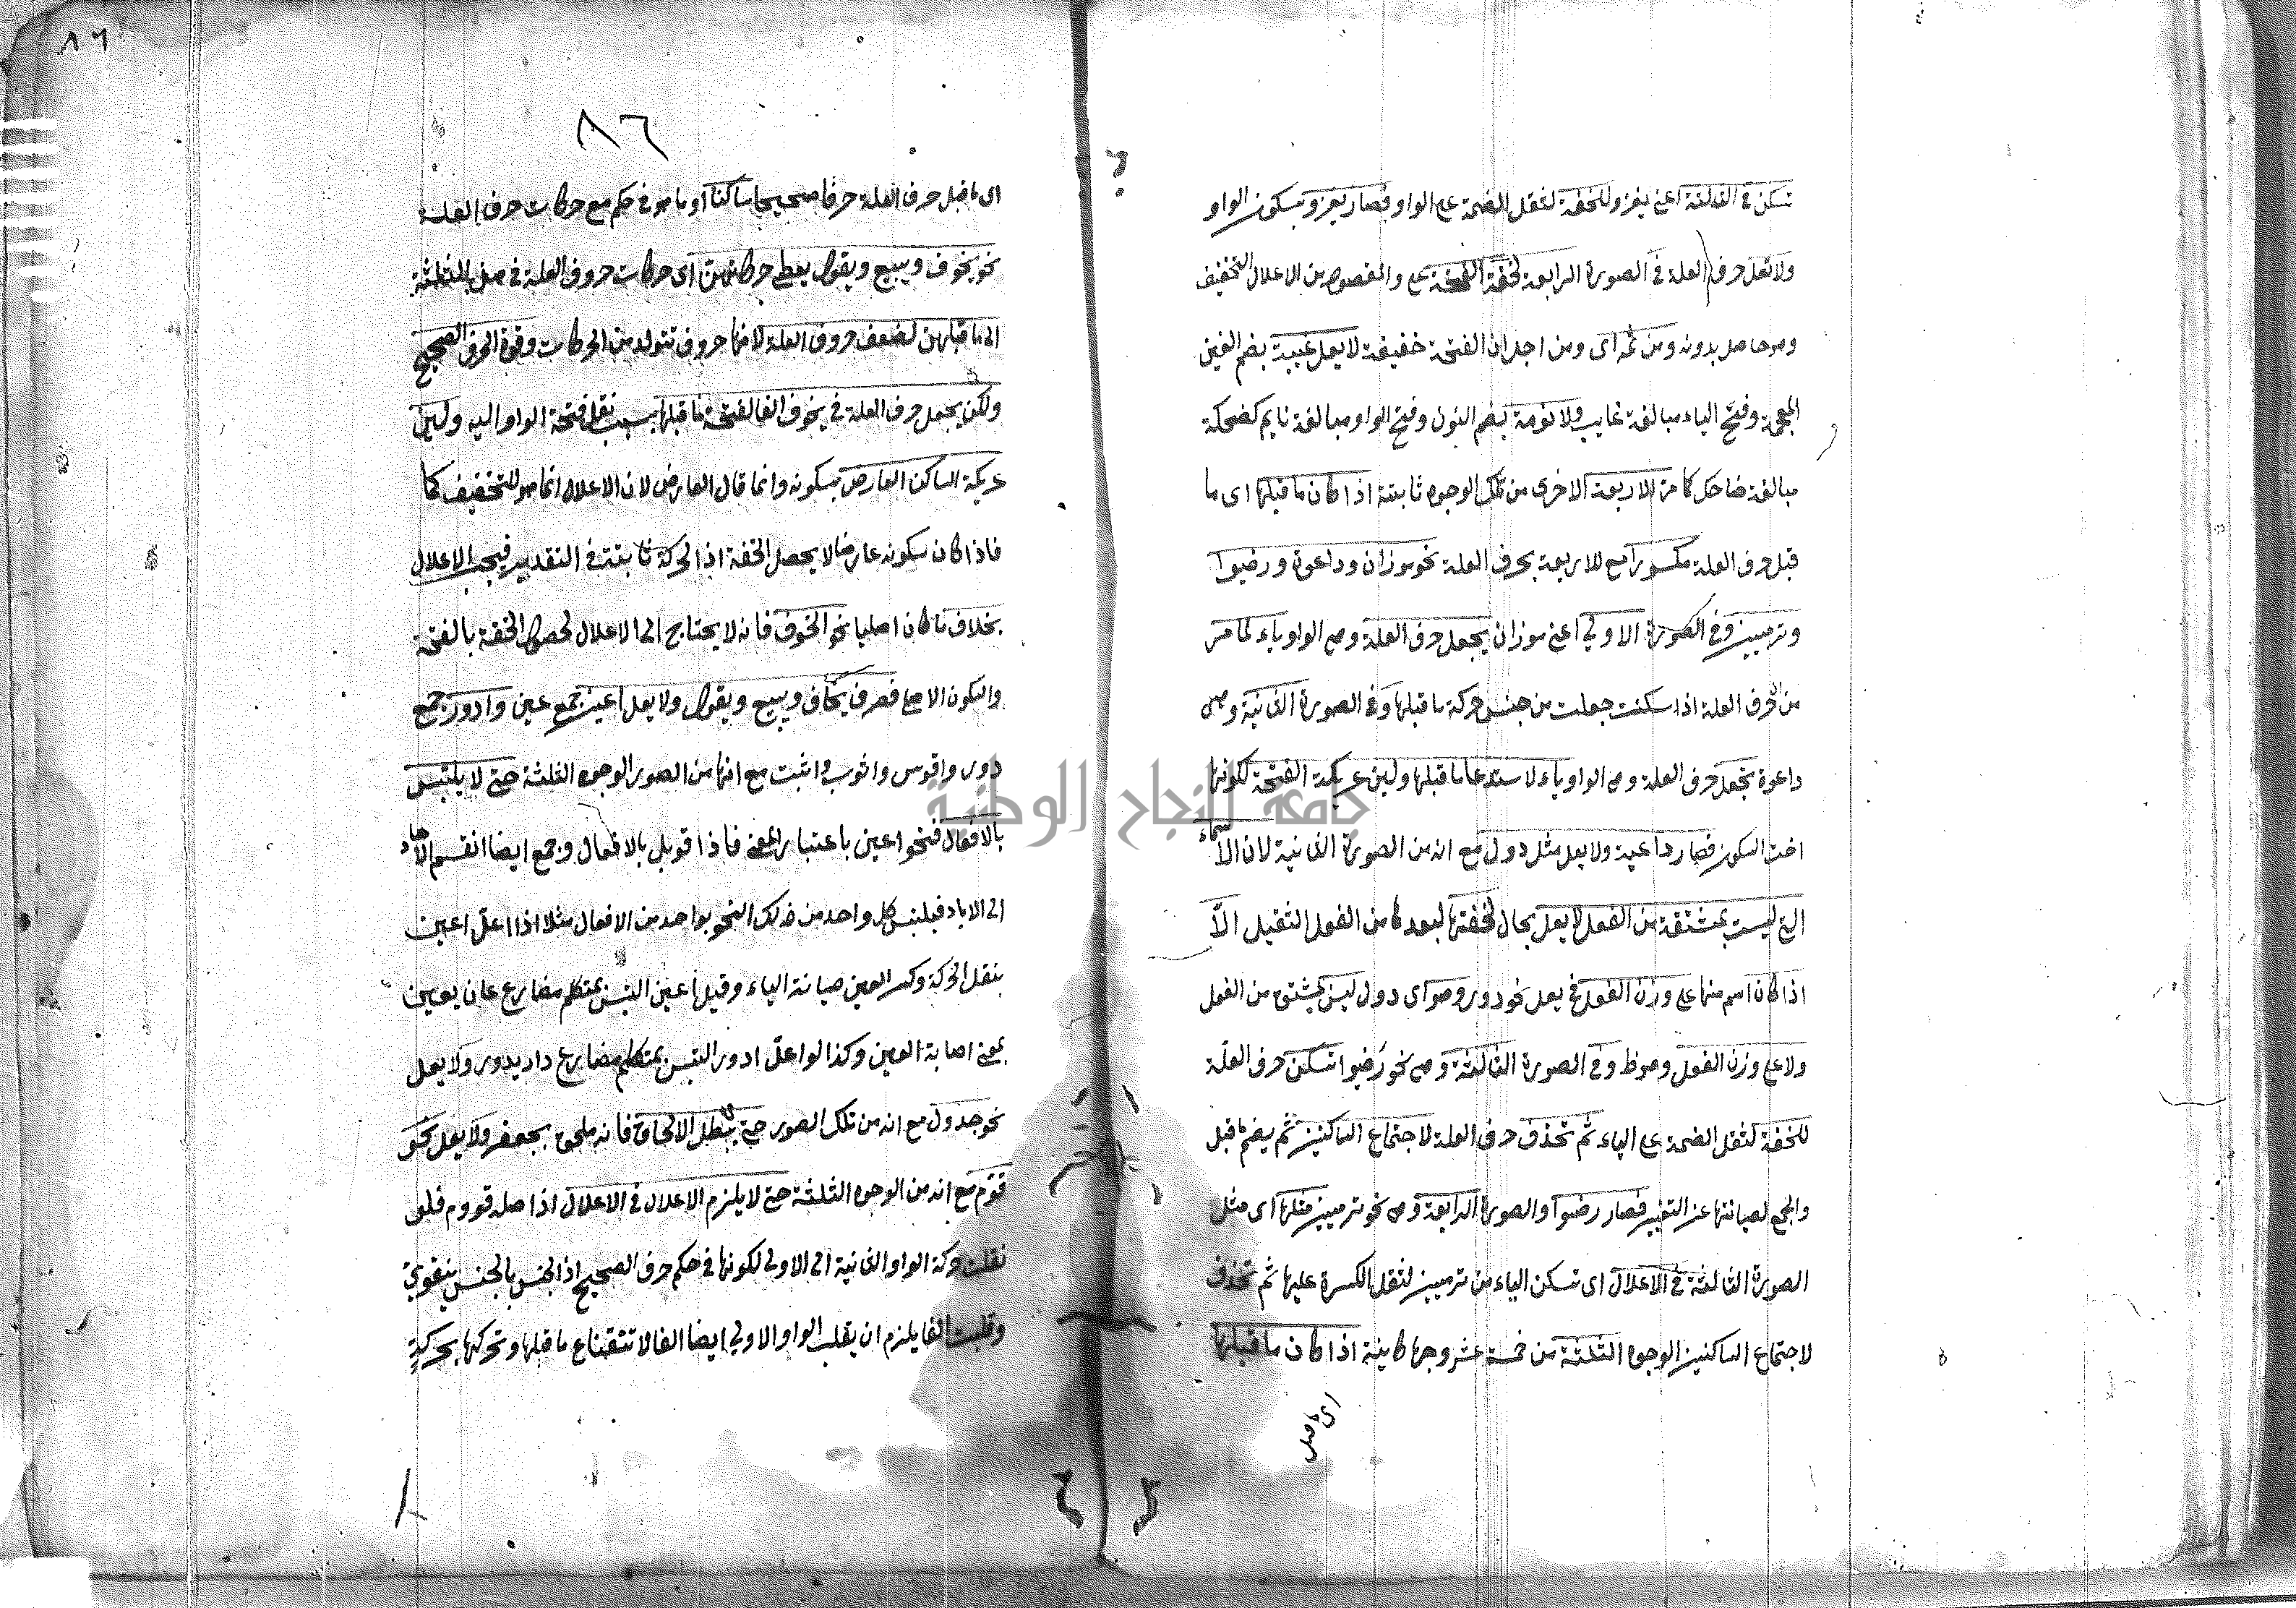 تسكن في الثالثة اعني يغزو للخفة لثقل الضمة على الواو فصار يغزو بسكون الواو
ولا تعل حرف العلة في الصورة الرابعة لخفة الفتحة على والمقصود من الاعلال التخفيف
وهو حاصل بدونه ومن ثمه اى ومن اجل ان الفتحة خفيفة لا يعل غيبة بضم الغين
المعجمة وفتح الياء مبالغة غايب ولا نومة بضم النون وفتح الواو مبالغة نايم كضحكة
مبالغة ضاحك كا من الاربعة الاخرى من تلك الوجوه ثابتة اذا كان ما قبلها اى ما
قبل حرف العلة مكسورا مع الاربعة بحرف العلة نحو موزان وداعوة ورضيوا
وترميين وفي الصورة الاولى اعني موزان يجعل حرف العلة وهي الواو ياء لما مر
من ان حرف العلة اذا سكنت جعلت من جنس حركة ما قبلها وفي الصورة الثانية وهي
داعوة تجعل حرف العلة وهي الواو ياء لاستدعا ما قبلها ولين عريكة الفتحة لكونها
اخت السكون فصار داعية ولا يعل مثل دول مع انه من الصورة الثانية لان الاسماء
التي ليست بمشتقة من الفعل لا يعل بحال لخفتها لبعدها من الفعل الثقيل الا
اذا كان اسم منها على وزن الفعل في يعل نحو دور وهو اى دول ليس بمشتق من الفعل
ولا على وزن الفعل وهو ظ وفي الصورة الثالثة وهي نحو رضيوا تسكن حرف العلة
للخفة لثقل الضمة على الياء ثم تحذف حرف العلة لاجتماع الساكنين ثم يضم ما قبل
والجمع لصيانتها عن التغيير فصار رضوا والصورة الرابعة وهي نحو ترميين مثلها اى مثل
الصورة الثالثة في الاعلال اى تسكن الياء من ترميين لثقل الكسرة عليها ثم تحذف
لاجتماع الساكنين الوجوه الثلثة من خمسة عشر وجها كاينة اذا كان ما قبلها
اى ما قبل
٨٦
٨٦
اى ما قبل حرف العلة حرفا صحيحا ساكنا او ما هو في حكم مع حركات حرف العلة
نحو يخوف ويبيع ويقول يعطى حركاتهن اى حركات حروف العلة في هذه الثلثة
الى ما قبلهن لضعف حروف العلة لانها حروف تتولد من الحركات وقوة الحرف الصحيح
ولكن يجعل حرف العلة في يخوف الفا لفتحة ما قبلها بسبب نقل فتحة الواو اليه ولين
عريكة الساكن العارض بسكونه وانما قال العارض لان الاعلال انما هو للتخفيف كما
فاذا كان سكونه عارضا لا يحصل الخفة اذ الحركة ثابتة في التقدير فيجب الاعلال
بخلاف ما كان اصليا نحو الخوف فانه لا يحتاج الى الاعلال لحصول الخفة بالفتحة
والسكون الاصلي فصرف يخاف ويبيع ويقول ولا يعل اعين جمع عين وادور جمع
دور واقوس واثوب واثبت مع انها من الصور الوجوه الثلثة حتى لا يلتبس
بالافعال فنحو اعين باعتبار المعنى فاذا قوبل بالافعال وجمع ايضا انقسم الاحاد
الى الاباد فيلتبس كل واحد من ذلك النحو بواحد من الافعال مثلا اذا اعل اعين
بنقل الحركة وكسر العين صيانة الياء وقيل اعين التبس بمتكلم مضارع عان يعين
بمعنى اصابة العين وكذا لو اعل ادور التبس بمتكلم مضارع دار يدور ولا يعل
نحو جدول مع انه من تلك الصور حتى لا يبطل الالحاق فانه ملحق بجعفر ولا يعل نحو
قوم مع انه من الوجوه الثلثة حتى لا يلزم الاعلال في الاعلال اذ اصله قووم فلو
نقلت حركة الواو الثانية الى الاولى لكونها في حكم حرف الصحيح اذ الجنس بالجنس يتقوى
وقلبت الفا يلزم ان يقلب الواو الاولى ايضا الفا لانتفاع ما قبلها وتحركها بحركة
جامعة النجاح الوطنية